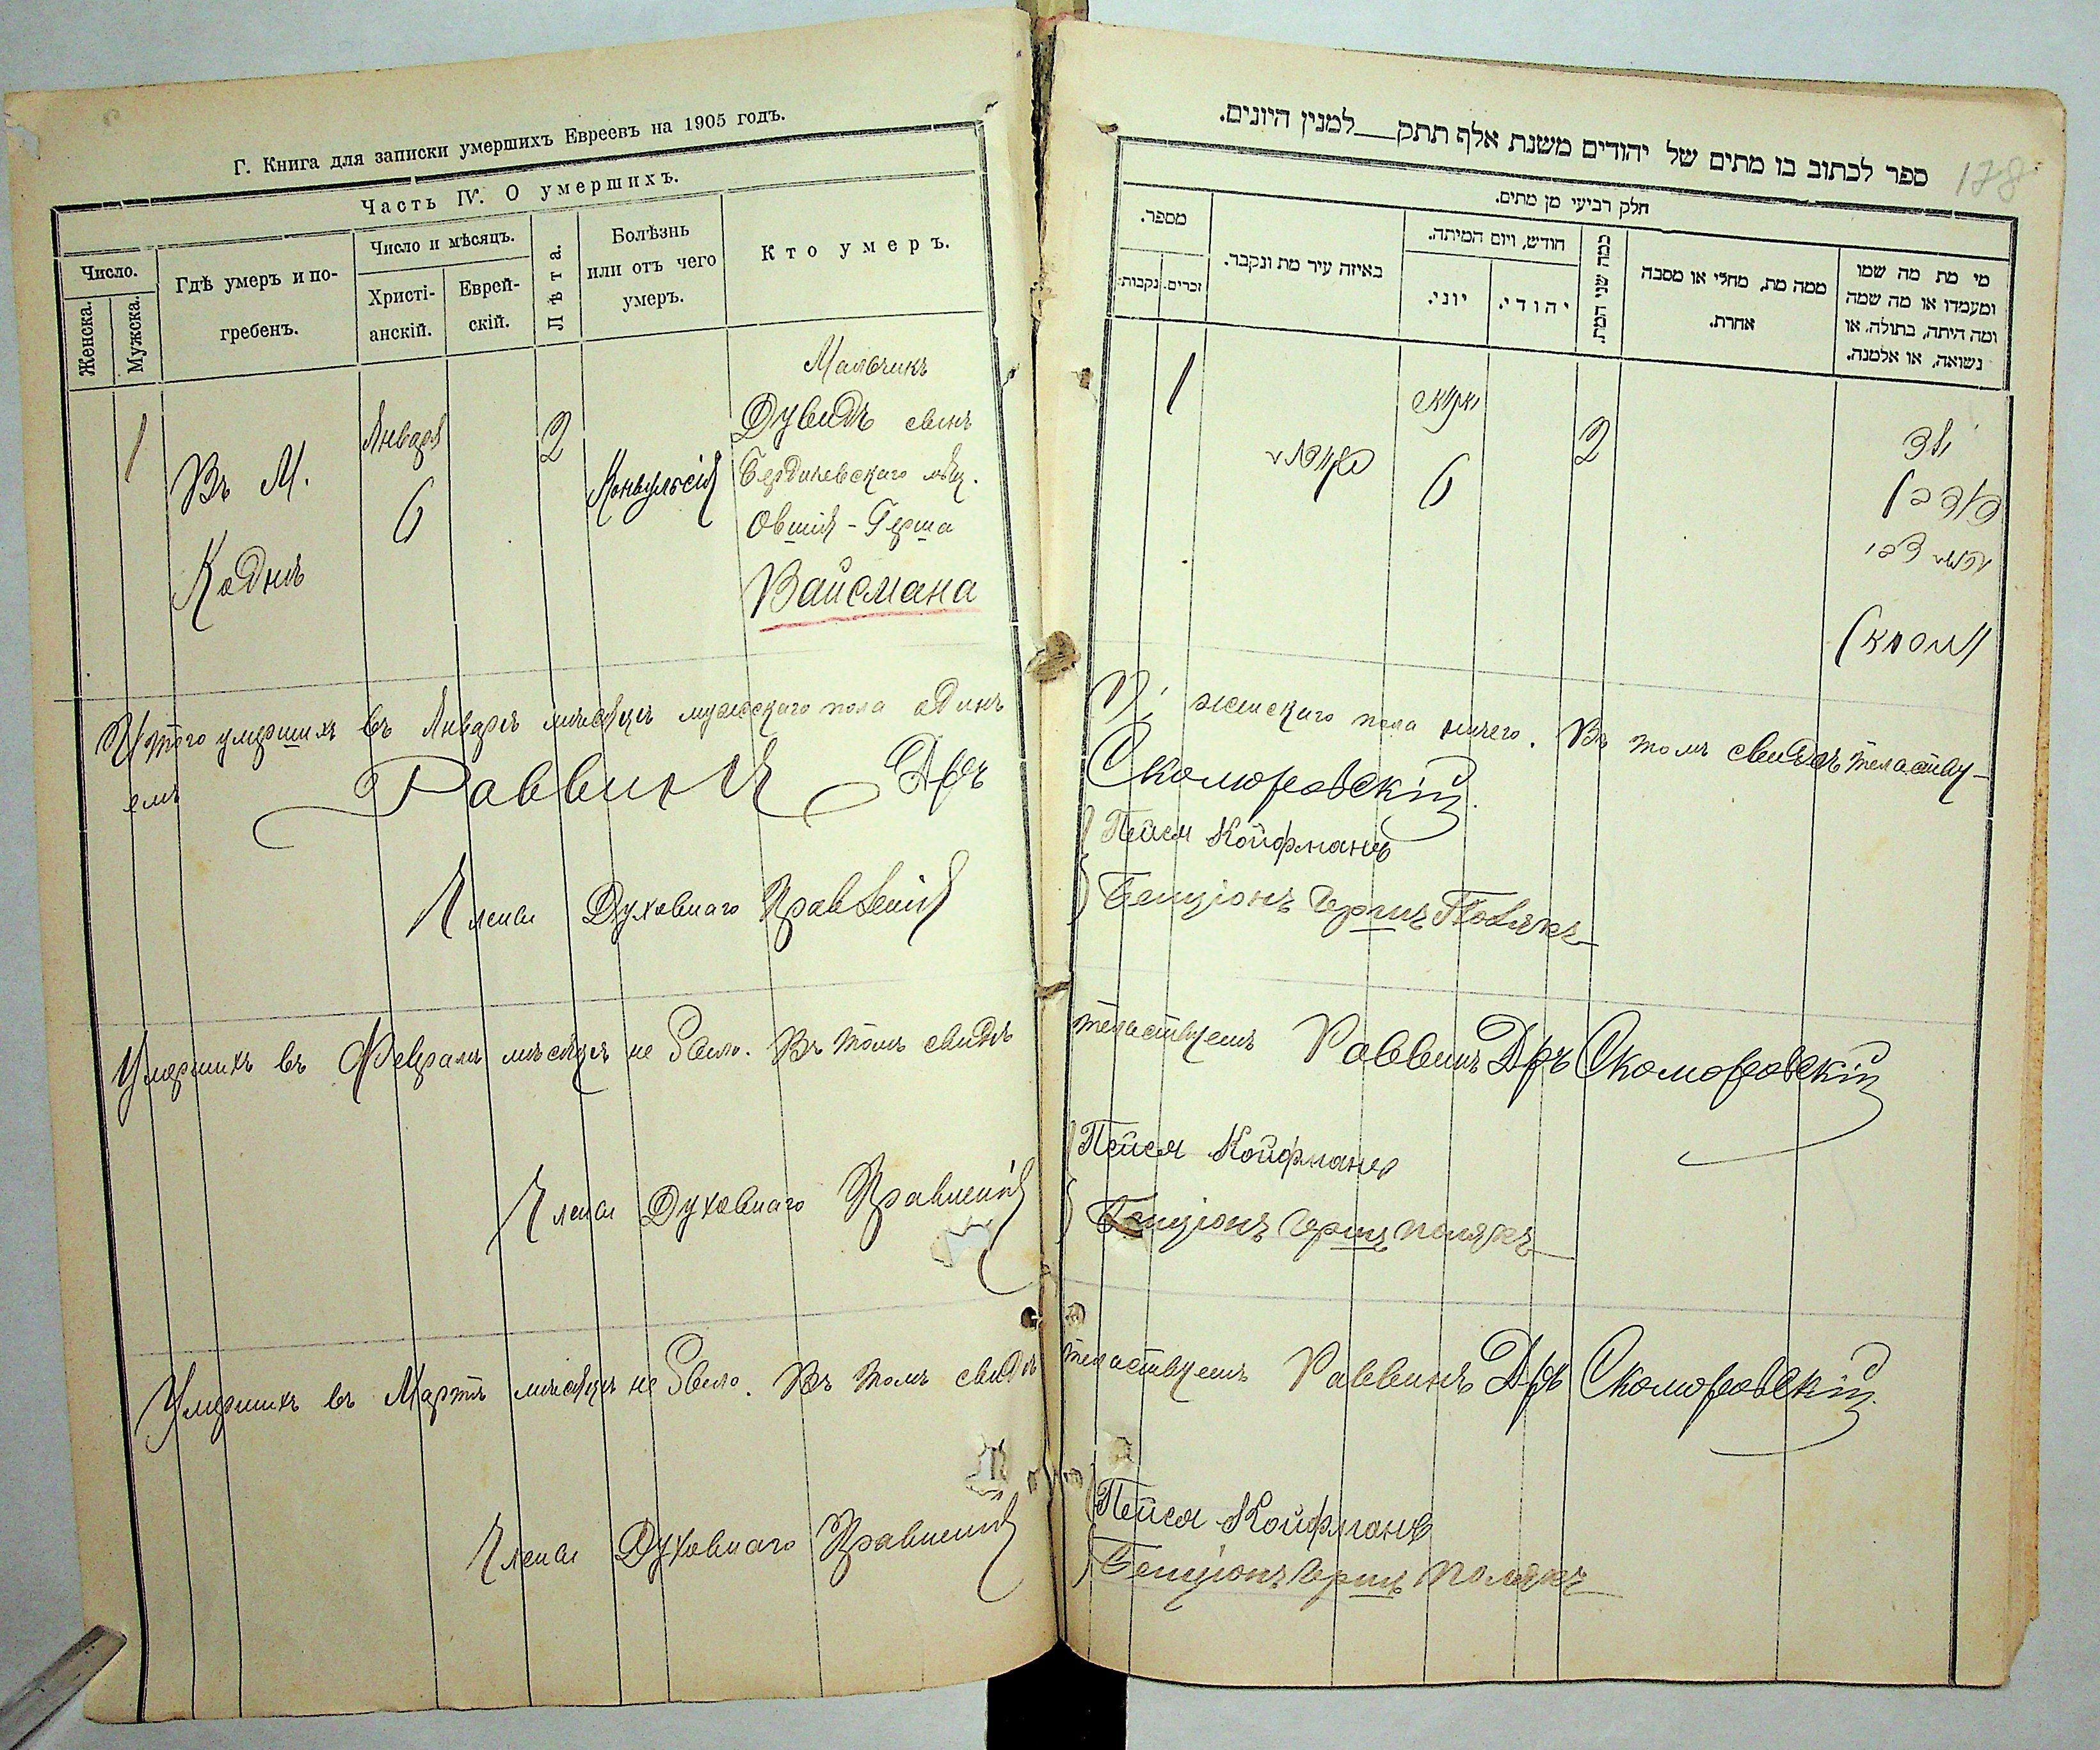 Г. Книга для записки умершихъ Евреевъ на 1905 годъ.
Часть IV. О умершихъ.
Число.
Женска.
Мужска.
Гдѣ умеръ и по-
гребенъ.
Число и мѣсяцъ.
Христі-
анскій.
Еврей-
скій.
Лѣта.
Болѣзнь
или отъ чего
умеръ.
Кто умеръ.
1
Въ М.
Кодня
Января
6
2
Конвульсія
Мальчикъ
Дувидъ сынъ
Бердичевскаго мѣщ.
Овшія-Герша
Вайсмана
Итого умершихъ въ Январѣ мѣсяцѣ мужскаго пола одинъ
емъ
Раввинъ Дръ
Члены Духовнаго Правленія
Умершихъ въ Февралѣ мѣсяцѣ не было. Въ томъ свидѣ
Члены Духовнаго Правленія
Умершихъ въ Мартѣ мѣсяцѣ не было. Въ томъ свидѣ
Члены Духовнаго Правленія
ספר לכתוב בו מתים של יהודים משנת אלף תתק למנין היונים.
178
חלק רביעי מן מתים.
מספר.
נקבות.
זכרים.
באיזה עיר מת ונקבר.
חודש, ויום המיתה.
יוני.
יהודי.
כמה שני המת.
ממה מת, מחלי או מסבה
אחרת.
מי מת מה שמו
ומעמדו או מה שמה
ומה היתה, בתולה, או
נשואה, או אלמנה.
1
6
2
ילד
ווייסמאן
женскаго пола ничего. Въ томъ свидѣтельству-
Скоморовскій
Пейся Койфманъ
Бенціонъ Гершъ Полякъ
тельствуемъ Раввинъ Дръ Скоморовскій
Пейся Койфманъ
Бенціонъ Гершъ Полякъ
тельствуемъ Раввинъ Дръ Скоморовскій
Пейся Койфманъ
Бенціонъ Гершъ Полякъ